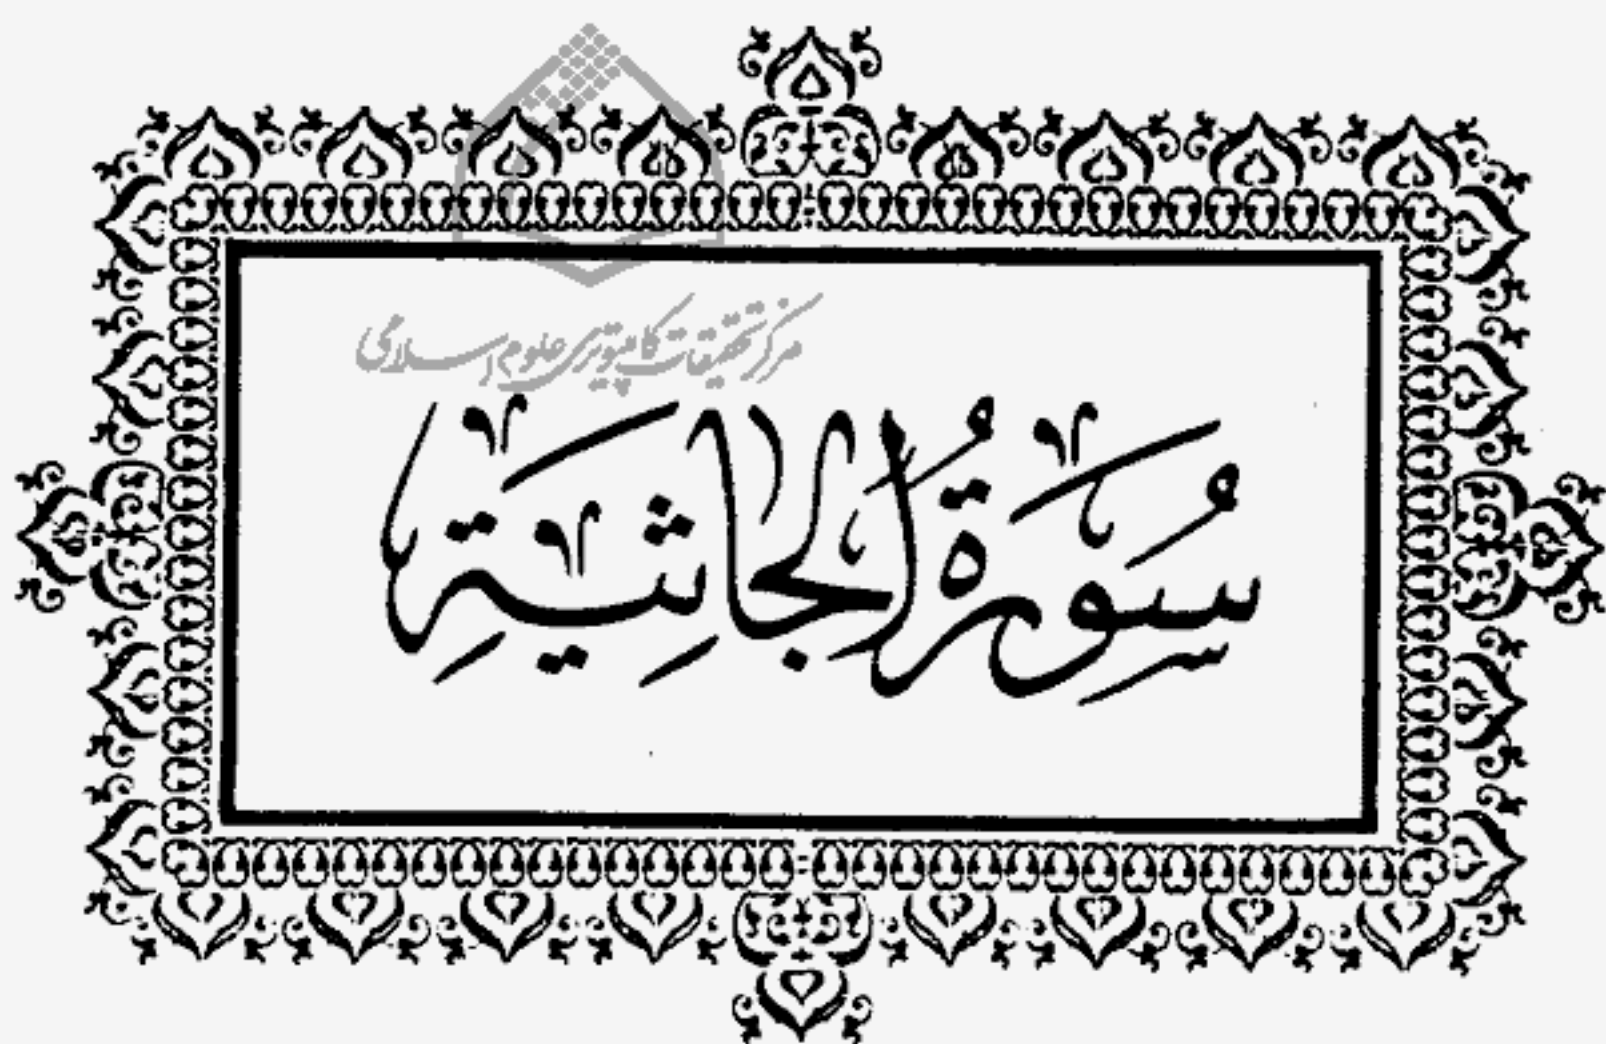 مرکز تحقیقات کامپیوتری علوم اسلامی
سُورَةُ الجَاثِيَةِ